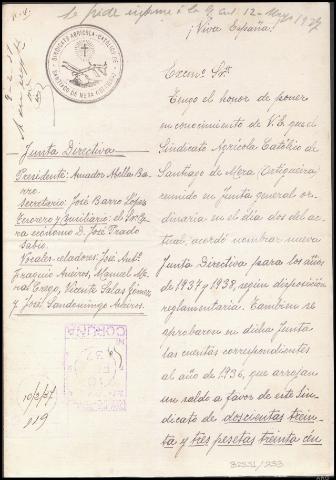 Se pide informe a la G. Civil 12-Mayo 1937
¡Viva España!
SINDICATO AGRÍCOLA-CATÓLICO DE
SANTIAGO DE MERA
Excmo Sr.
Tengo el honor de poner
en conocimiento de V.E. que el
Sindicato Agrícola Católico de
Santiago de Mera (Ortigueira)
reunido en Junta general or-
dinaria en el día dos del ac-
tual, acordó nombrar nueva
Junta Directiva para los años
de 1937 y 1938, según disposición
reglamentaria. Tambien se
aprobaron en dicha Junta
las cuentas correspondientes
al año de 1936, que arrojan
un saldo a favor de este Sin-
dicato de doscientas trein-
ta y tres pesetas treinta cin
Junta Directiva
Presidente: Amador Abella Ba-
rro.
Secretario: José Barro López
Tesorero y Consiliario: el Sr. Cu-
ra ecónomo D. José Prado
Sabio.
Vocales celadores: José Antº
Fraguio Aneiros, Manuel Me-
nal Crego, Vicente Salas Gómez
y José Sandomingo Aneiros.
CORUÑA
10/3/37
119
32551/253